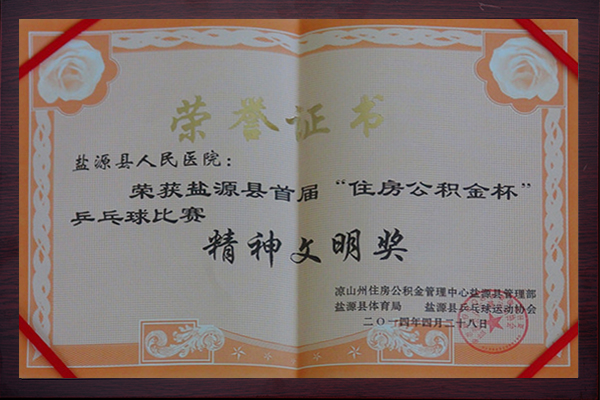 荣誉证书
盐源县人民医院：
荣获盐源县首届“住房公积金杯”
乒乓球比赛
精神文明奖
凉山州住房公积金管理中心盐源县管理部
盐源县体育局 盐源县乒乓球运动协会
二〇一四年四月二十八日